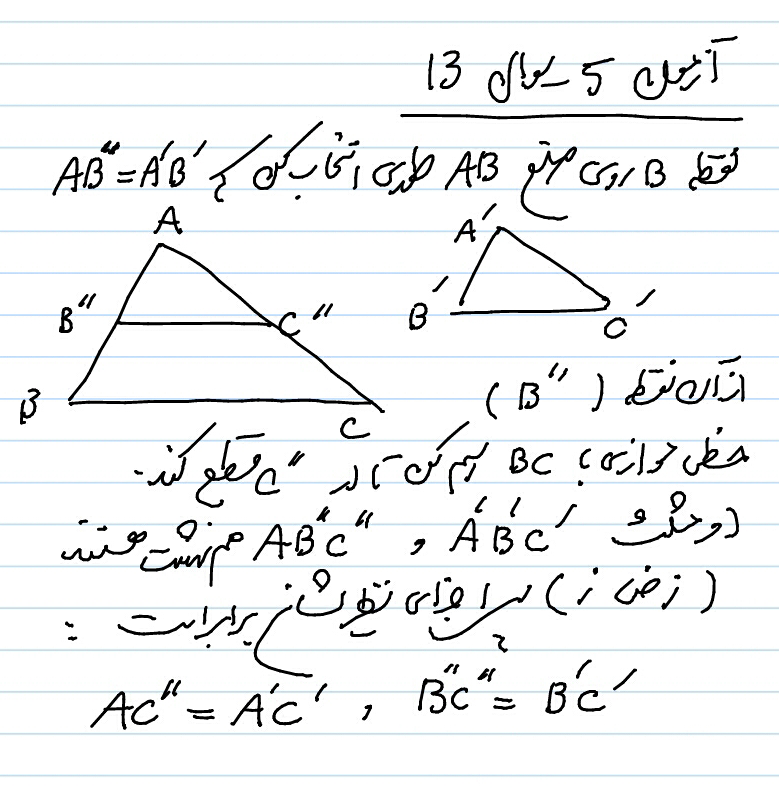 آزمون 5 سوال 13
نقطه B" روی ضلع AB طوری انتخاب کن که AB"=A'B'
A
B"
C"
B
C
A'
B'
C'
از آن نقطه (B")
خطی موازی با BC رسم کن تا AC را در C" قطع کند.
دو مثلث A'B'C' و AB"C" همنهشت هستند
(زض ز) پس اجزای نظیرشان برابر است :
AC"=A'C' , B"C"=B'C'